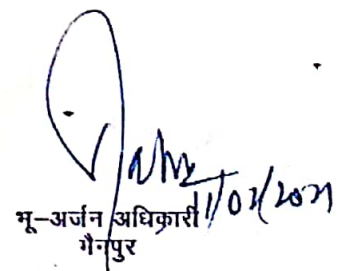 11/02/2021
भू-अर्जन अधिकारी
गैनपुर